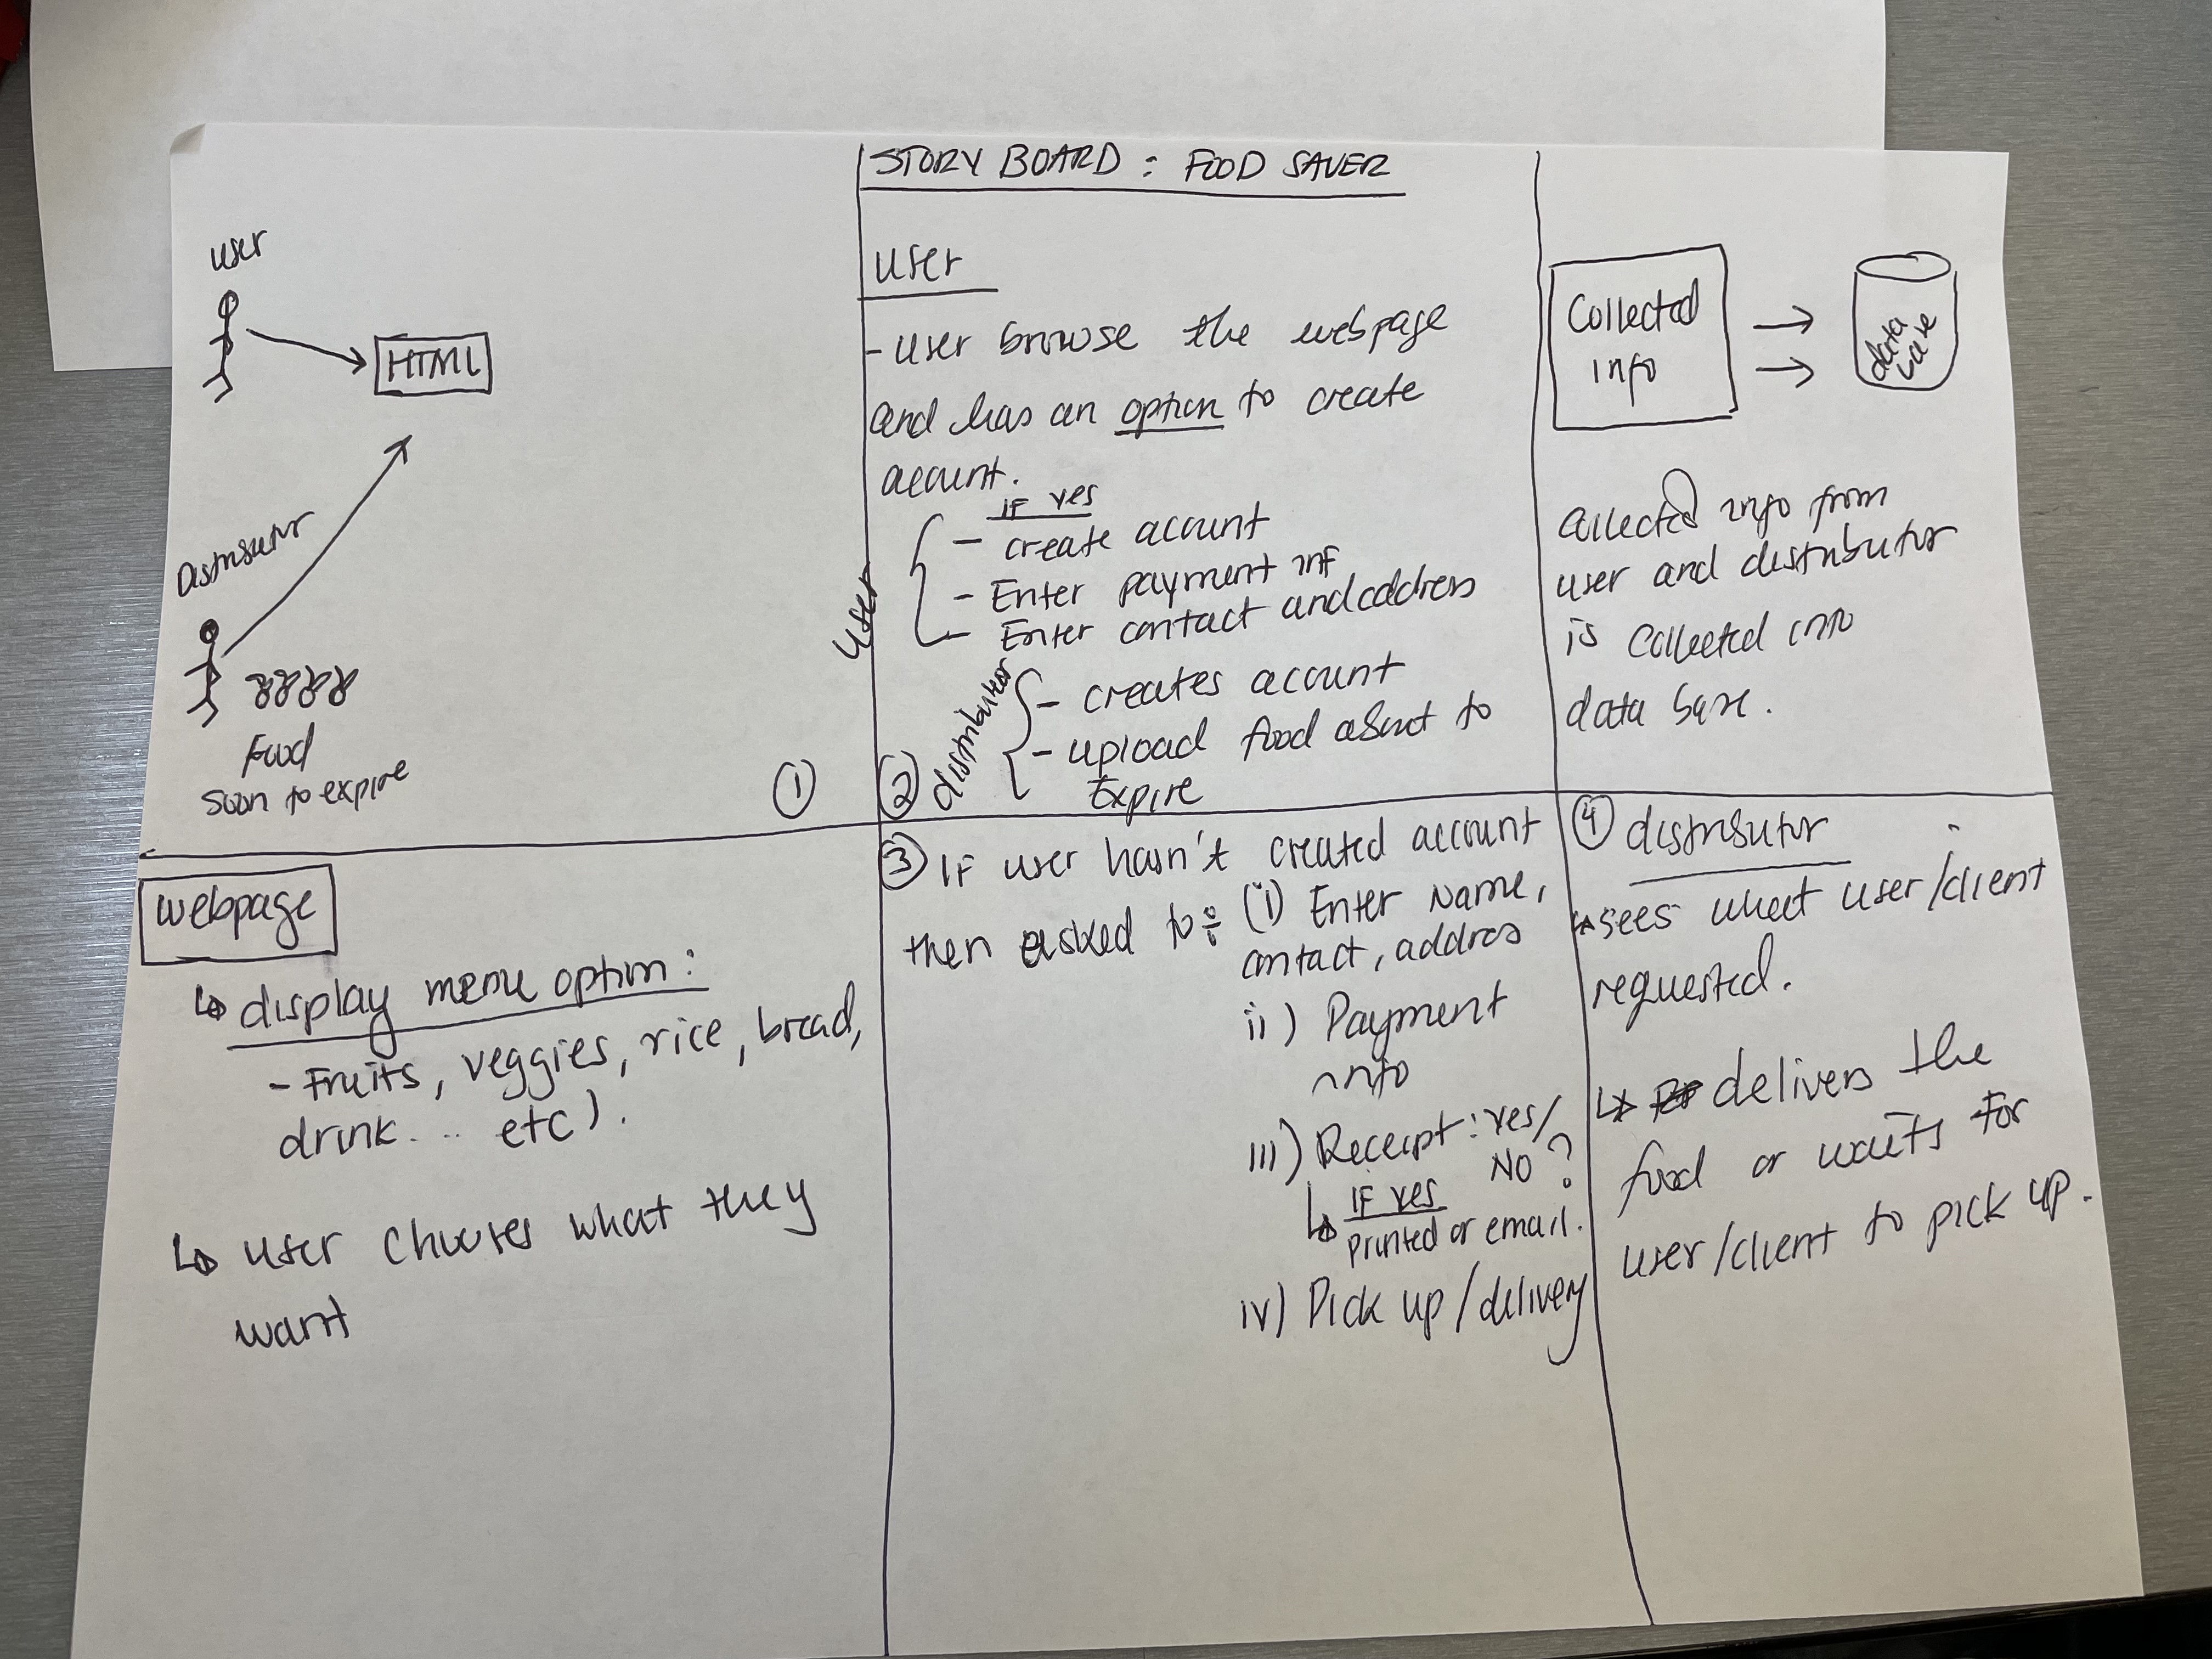 STORY BOARD : FOOD SAVER
user
HTML
Distributor
Food
Soon to expire
①
user
- user browse the webpage
and has an option to create
account.
if yes
- create account
- Enter payment inf
- Enter contact and address
user
- creates account
- upload food about to
Expire
distributor
②
Collected
info
data
base
Collected info from
user and distributor
is collected into
data base.
webpage
↳ display menu option :
- Fruits, veggies, rice, bread,
drink... etc).
↳ user chooses what they
want
③ If user hasn't created account
then asked to: (i) Enter Name,
contact, address
ii) Payment
info
iii) Receipt : yes/
NO ?
↳ IF yes
printed or email.
iv) Pick up / delivery
④ distributor
↳ sees what user/client
requested.
↳ delivers the
food or waits for
user/client to pick up.